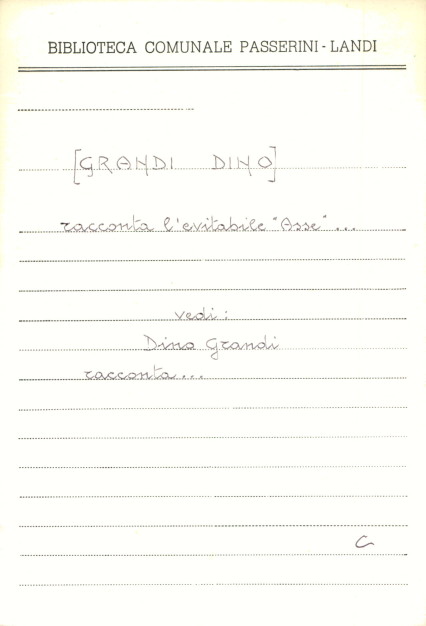 BIBLIOTECA COMUNALE PASSERINI-LANDI
[GRANDI DINO]
racconta l'evitabile "Asse"...
vedi:
Dino Grandi
racconta...
C